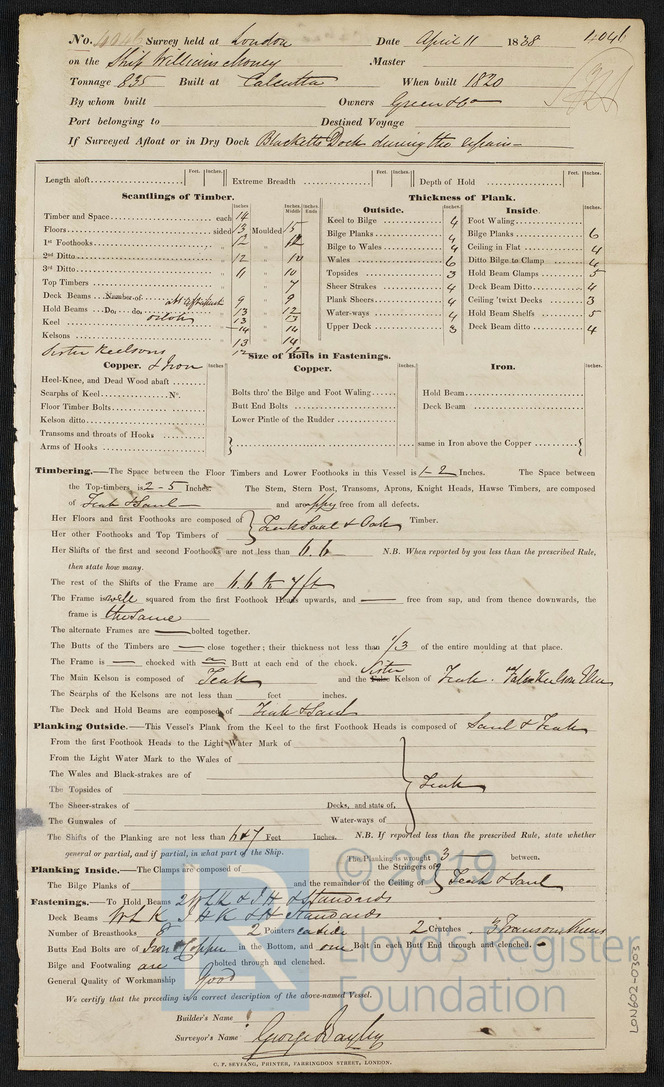 No. 4046 Survey held at London Date April 11 1838 4046
on the Ship William Money Master
Tonnage 835 Built at Calcutta When built 1820
By whom built Owners Green & Co
Port belonging to Destined Voyage
If Surveyed Afloat or in Dry Dock Blacketts Dock during the repairs
Length aloft Feet. Inches. Extreme Breadth Feet. Inches. Depth of Hold Feet. Inches.
Scantlings of Timber.
Inches Inches. Middle Inches. Ends
Timber and Space each 14
Floors sided 13 Moulded 15
1st Foothooks 12 12
2nd Ditto 12 10
3rd Ditto 11 10
Top Timbers 7
Deck Beams Number of 9 9
Hold Beams Do. do. 13 12
Keel 13 13
Kelsons 14 14
13 14
Sister Keelsons 12 12
Thickness of Plank.
Outside. Inches
Keel to Bilge 4
Bilge Planks 4
Bilge to Wales 4
Wales 6
Topsides 3
Sheer Strakes 4
Plank Sheers 4
Water-ways 4
Upper Deck 3
Inside. Inches.
Foot Waling
Bilge Planks 6
Ceiling in Flat 4
Ditto Bilge to Clamp 4
Hold Beam Clamps 5
Deck Beam Ditto 4
Ceiling 'twixt Decks 3
Hold Beam Shelfs 5
Deck Beam ditto 4
Size of Bolts in Fastenings.
Copper. & Iron Inches
Heel-Knee, and Dead Wood abaft
Scarphs of Keel No.
Floor Timber Bolts
Kelson ditto
Transoms and throats of Hooks
Arms of Hooks
Copper. Inches
Bolts thro' the Bilge and Foot Waling
Butt End Bolts
Lower Pintle of the Rudder
Iron. Inches.
Hold Beam
Deck Beam
same in Iron above the Copper
Timbering.—The Space between the Floor Timbers and Lower Foothooks in this Vessel is 1-2 Inches. The Space between
the Top-timbers is 2-5 Inches. The Stem, Stern Post, Transoms, Aprons, Knight Heads, Hawse Timbers, are composed
of Teak & Saul and are free from all defects.
Her Floors and first Foothooks are composed of Teak Saul & Oak Timber.
Her other Foothooks and Top Timbers of
Her Shifts of the first and second Foothooks are not less than 6.6 N.B. When reported by you less than the prescribed Rule,
then state how many.
The rest of the Shifts of the Frame are 6.6 to 7 ft
The Frame is well squared from the first Foothook Heads upwards, and — free from sap, and from thence downwards, the
frame is the same
The alternate Frames are — bolted together.
The Butts of the Timbers are — close together; their thickness not less than 1/3 of the entire moulding at that place.
The Frame is — chocked with a Butt at each end of the chock.
The Main Kelson is composed of Teak and the False Sister Kelson of Teak. and False Keelson Elm
The Scarphs of the Kelsons are not less than feet inches.
The Deck and Hold Beams are composed of Teak & Saul
Planking Outside.—This Vessel's Plank from the Keel to the first Foothook Heads is composed of Saul & Teak
From the first Foothook Heads to the Light Water Mark of
From the Light Water Mark to the Wales of
The Wales and Black-strakes are of
The Topsides of Teak
The Sheer-strakes of Decks, and state, of,
The Gunwales of Water-ways of
The Shifts of the Planking are not less than 6 & 7 Feet Inches. N.B. If reported less than the prescribed Rule, state whether
general or partial, and if partial, in what part of the Ship.
The Planking is wrought 3 between.
Planking Inside.—The Clamps are composed of the Stringers of
The Bilge Planks of and the remainder of the Ceiling of Teak & Saul
Fastenings.—To Hold Beams 2 W L K & I H & Standards
Deck Beams W L K I H K & H Standards
Number of Breasthooks 8 2 Pointers ea side 2 Crutches 3 Transom Knees
Butts End Bolts are of Iron & Copper in the Bottom, and one Bolt in each Butt End through and clenched.
Bilge and Footwaling are bolted through and clenched.
General Quality of Workmanship Good
We certify that the preceding is a correct description of the above-named Vessel.
Builder's Name
Surveyor's Name George Bayley
C. F. SEYFANG, PRINTER, FARRINGDON STREET, LONDON.
LON602-0303
© 2019
Lloyd's Register
Foundation
LR